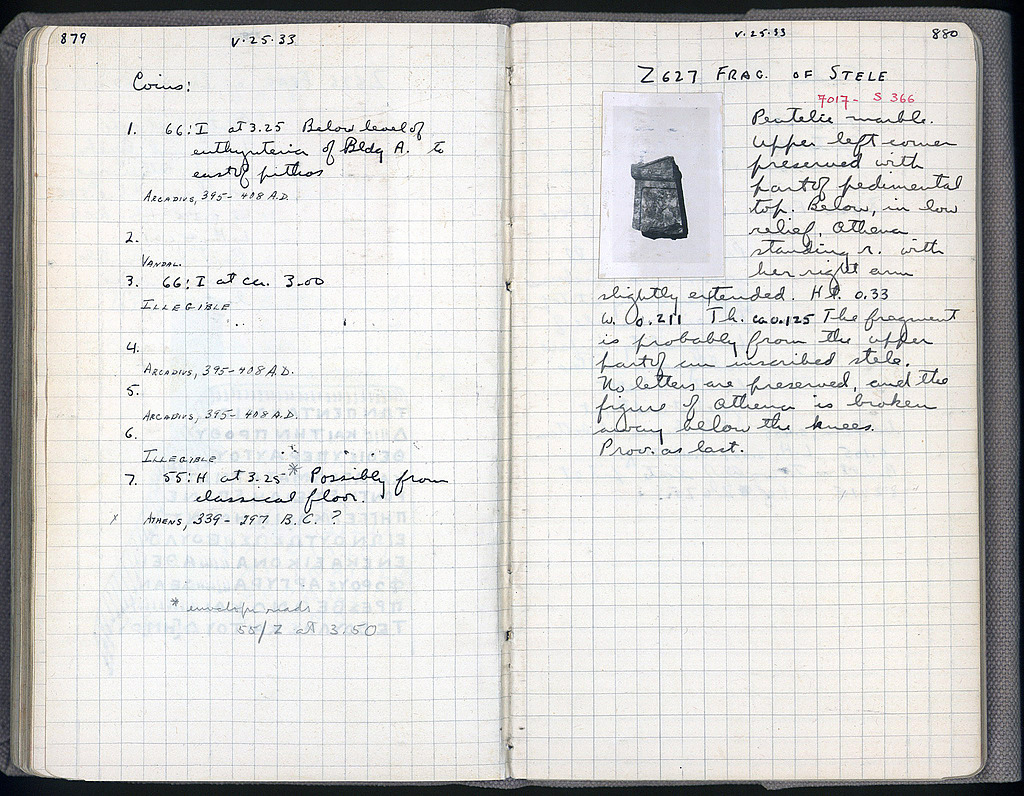 879
V·25·33
Coins:
1. 66:I at 3.25 Below level of
euthynteria of Bldg A. to
east of pithos
ARCADIUS, 395-408 A.D.
2.
VANDAL.
3. 66:I at ca. 3.00
ILLEGIBLE
4.
ARCADIUS, 395-408 A.D.
5.
ARCADIUS, 395-408 A.D.
6.
ILLEGIBLE
7. 55:H at 3.25* Possibly from
classical floor.
x ATHENS, 339-297 B.C. ?
* envelope reads
55/Z at 3.50
V·25·33
880
Z627 FRAG. OF STELE
7017- S 366
Pentelic marble.
Upper left corner
preserved with
part of pedimental
top. Below, in low
relief, Athena
standing r. with
her right arm
slightly extended. Ht. 0.33
W. 0.211 Th. ca 0.125 The fragment
is probably from the upper
part of an inscribed stele.
No letters are preserved, and the
figure of Athena is broken
away below the knees.
Prov. as last.